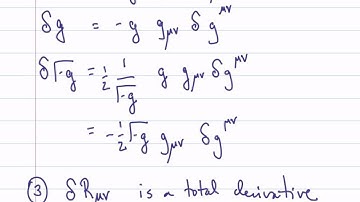 δg = -g g_μν δg^μν
δ√-g = 1/2 1/√-g g g_μν δg^μν
= -1/2 √-g g_μν δg^μν
③ δR_μν is a total derivative